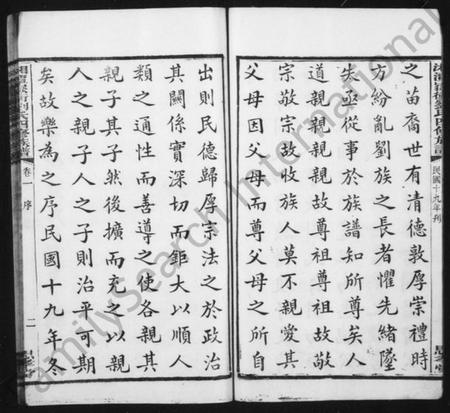 之苗裔世有清德敦厚崇禮時
方紛亂劉族之長者懼先緒墜
失亟從事於族譜知所尊矣人
親親故尊祖尊祖故敬
宗敬宗故收族人莫不親愛其
父母因父母而尊父母之所自
民國十九年刋
出則民德歸厚宗法之於政治
其關係實深切而鉅大以順人
類之通性而善導之使各親其
親子其子然後擴而充之以親
人之親子人之子則治平可期
矣故樂為之序民國十九年冬
卷一 序
二
FamilySearch International